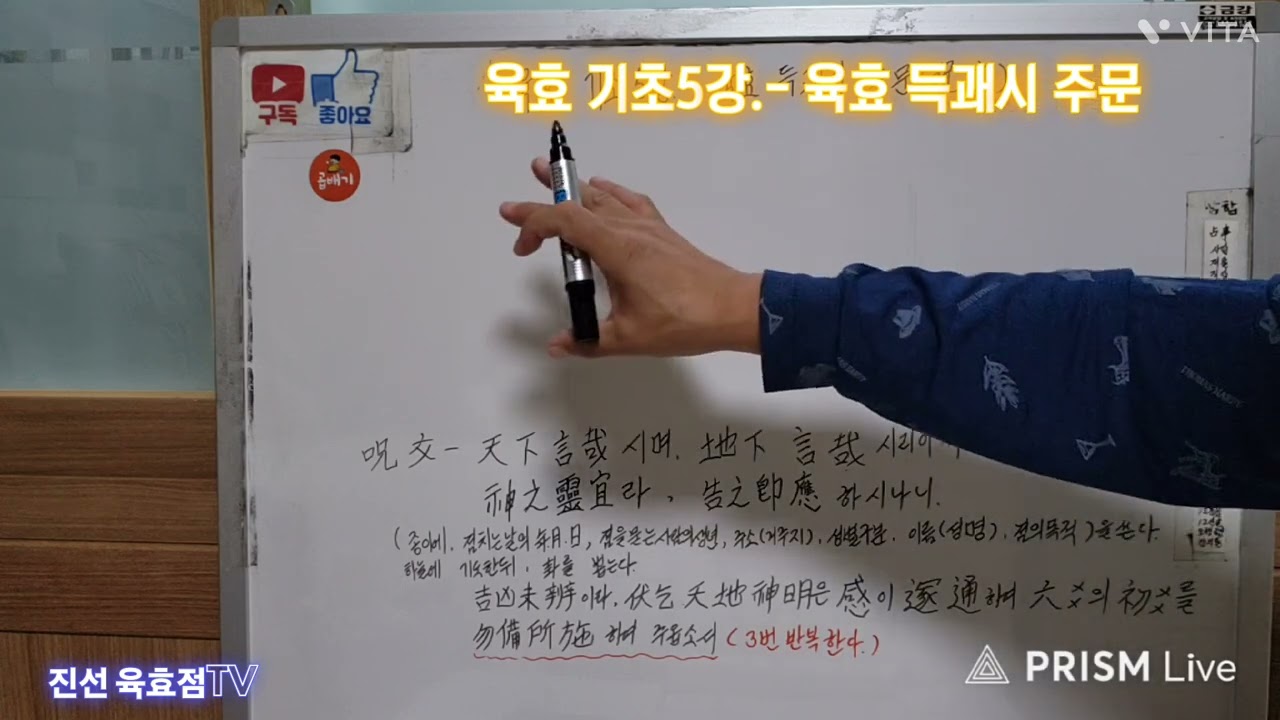 VITA
육효 기초5강.- 육효 득괘시 주문
구독 좋아요
곰배기
呪文 - 天下言哉 시며. 地下 言哉 시리이
神之靈宜라, 告之卽應 하시나니.
(종이에. 점치는날의 年月.日, 점을묻는사람의생년, 주소(거주지), 성별구분. 이름(성명), 점의목적)을 쓴다.
하늘에 기도한뒤, 괘를 뽑는다.
吉凶未判이라. 伏乞 天地神明은 感이遂通하여 六爻의 初爻를
勿備所施 하여 주옵소서 (3번 반복한다.)
진선 육효점TV
PRISM Live